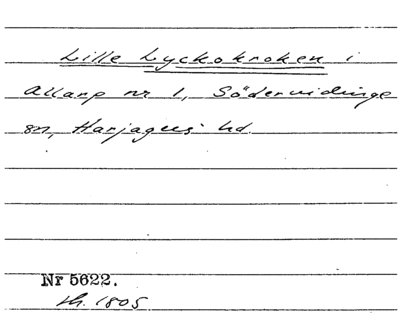 Lille Lyckokroken i
Allarp nr 1, Södervidinge
sn, Harjagers hd.
Nr 5622.
th. 1805